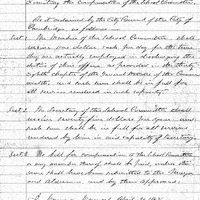 the Compensation of the School Committee
Be it ordained by the City Council of the City of
Cambridge as follows
Sect 1. The Members of the School Committee shall
receive one dollar each per day for the time
they are actually employed in discharging the
duties of their office, as provided in the thirty
eighth chapter of the General Statutes of the Common
wealth, and such sum shall be in full for
all services rendered in such capacity.
Sect 2. The Secretary of the School Committee shall
receive seventy five dollars per year and
such sum shall be in full for all services
rendered by him in said capacity of Secretary.
Sect 3. No bill for compensation of the School Committee
or any member thereof, shall be paid, unless the
same shall have been submitted to the Mayor
and Aldermen and by them approved.